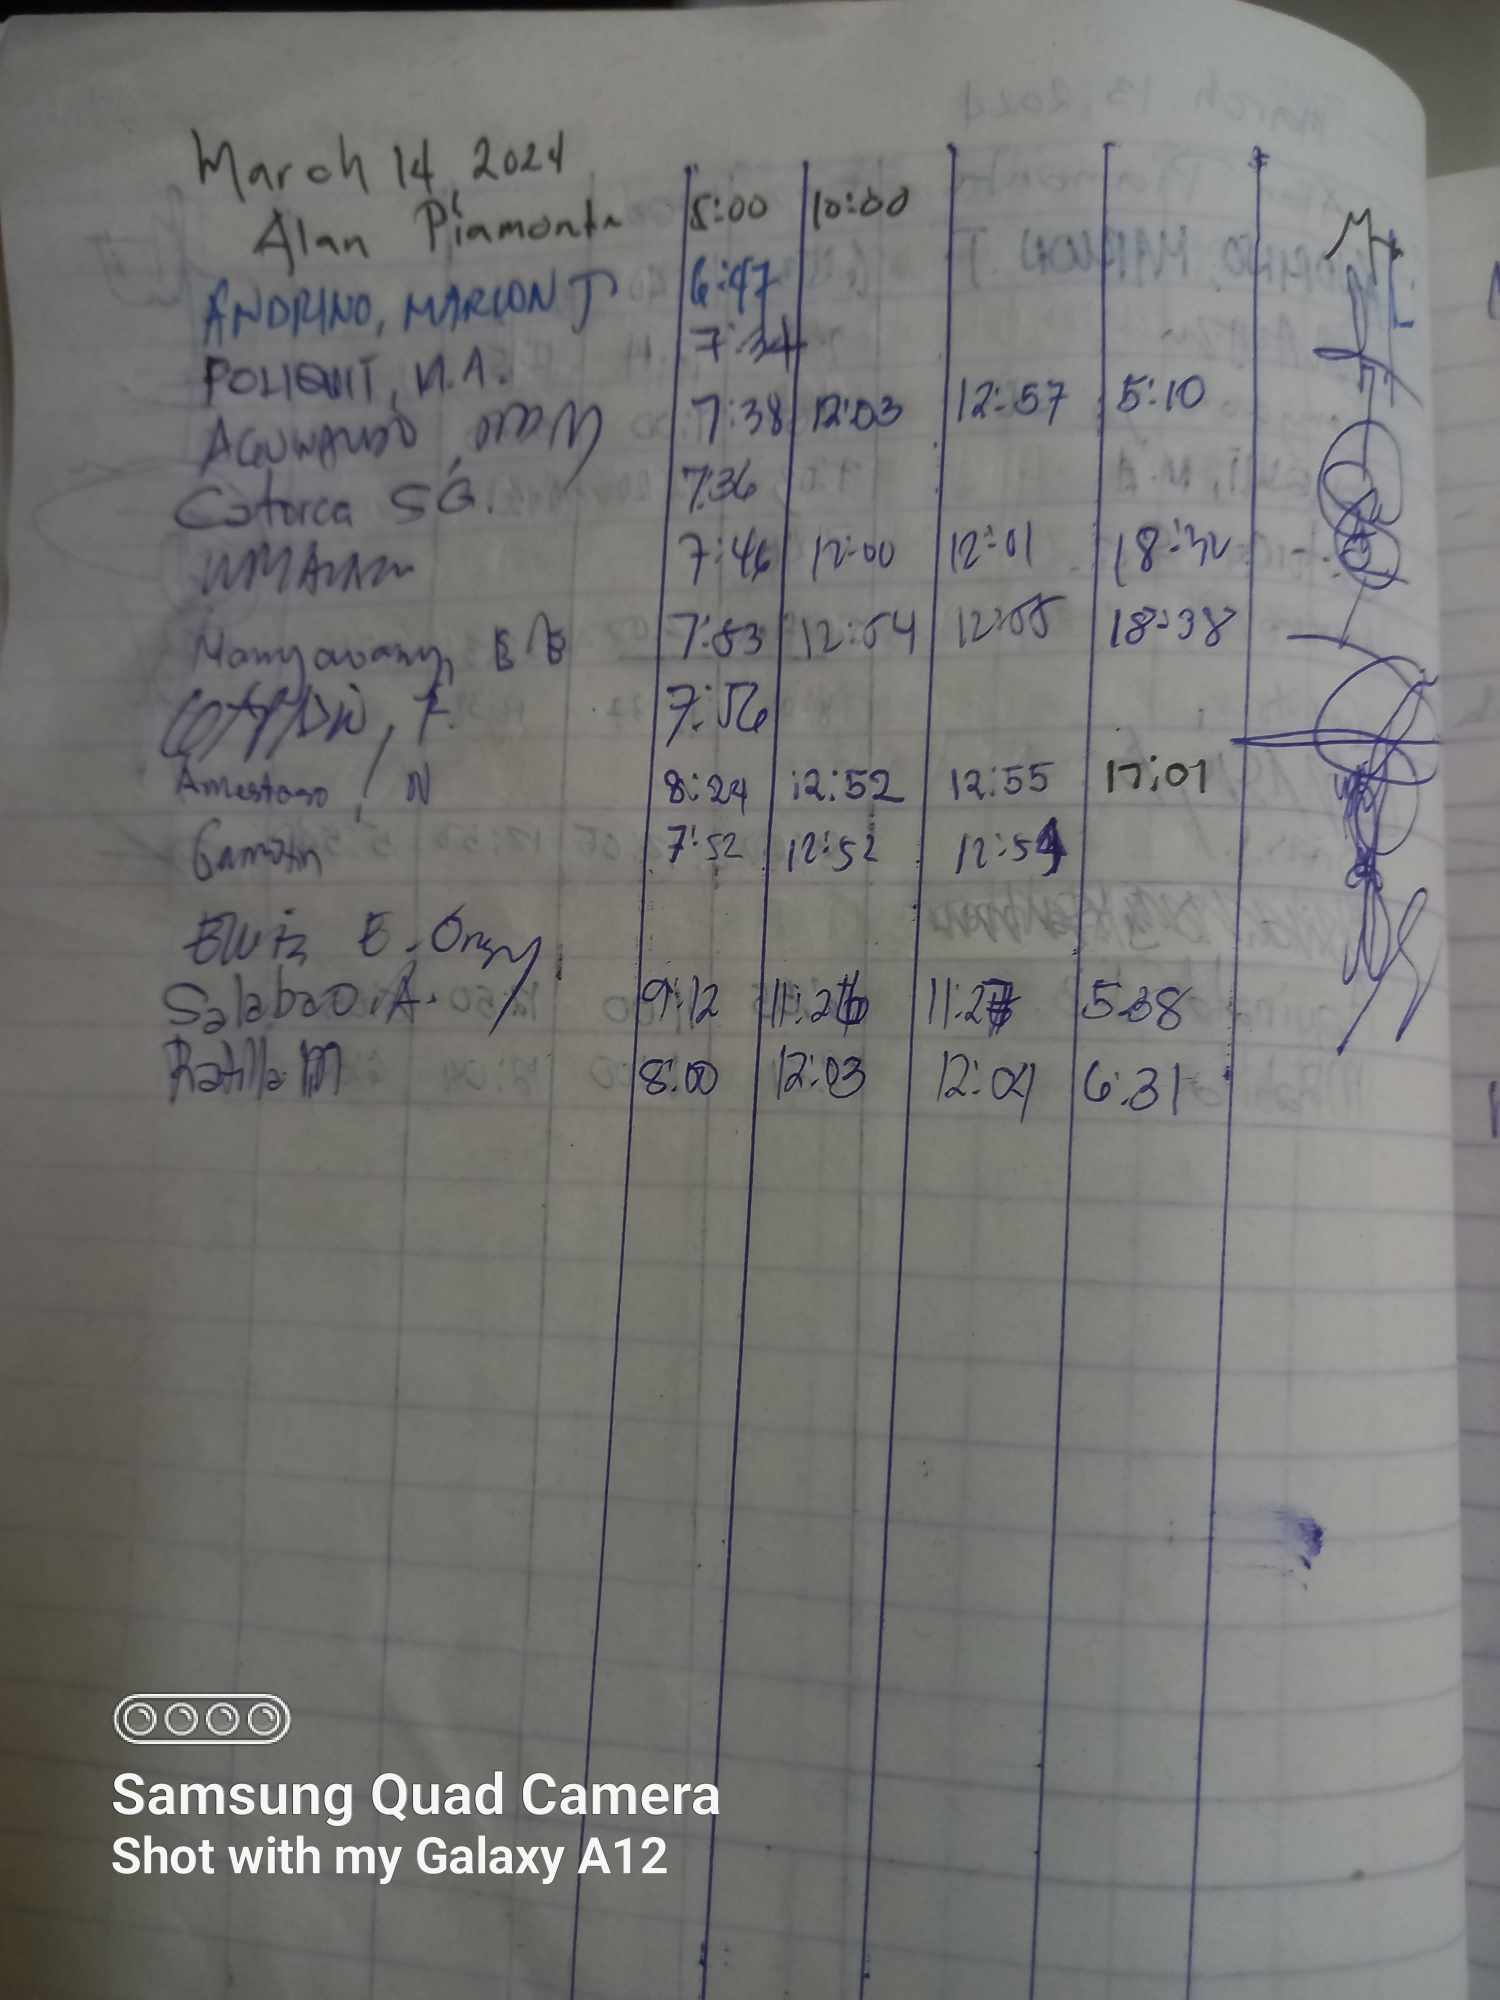 March 14, 2024
Alan Piamonte 8:00 10:00
ANDRINO, MARLON J 6:47
POLIQUIT, N.A. 7:34
7:38 12:03 12:57 5:10
Catorca SG. 7:36
7:46 12:00 12:01 18:32
7:53 12:54 12:55 18:38
7:56
Amestoso, N 8:24 12:52 12:55 17:01
Gamotin 7:52 12:52 12:54
E.
Salabao. A. 9:12 11:26 11:27 5:38
Ratilla M 8:00 12:03 12:04 6:31
Samsung Quad Camera
Shot with my Galaxy A12